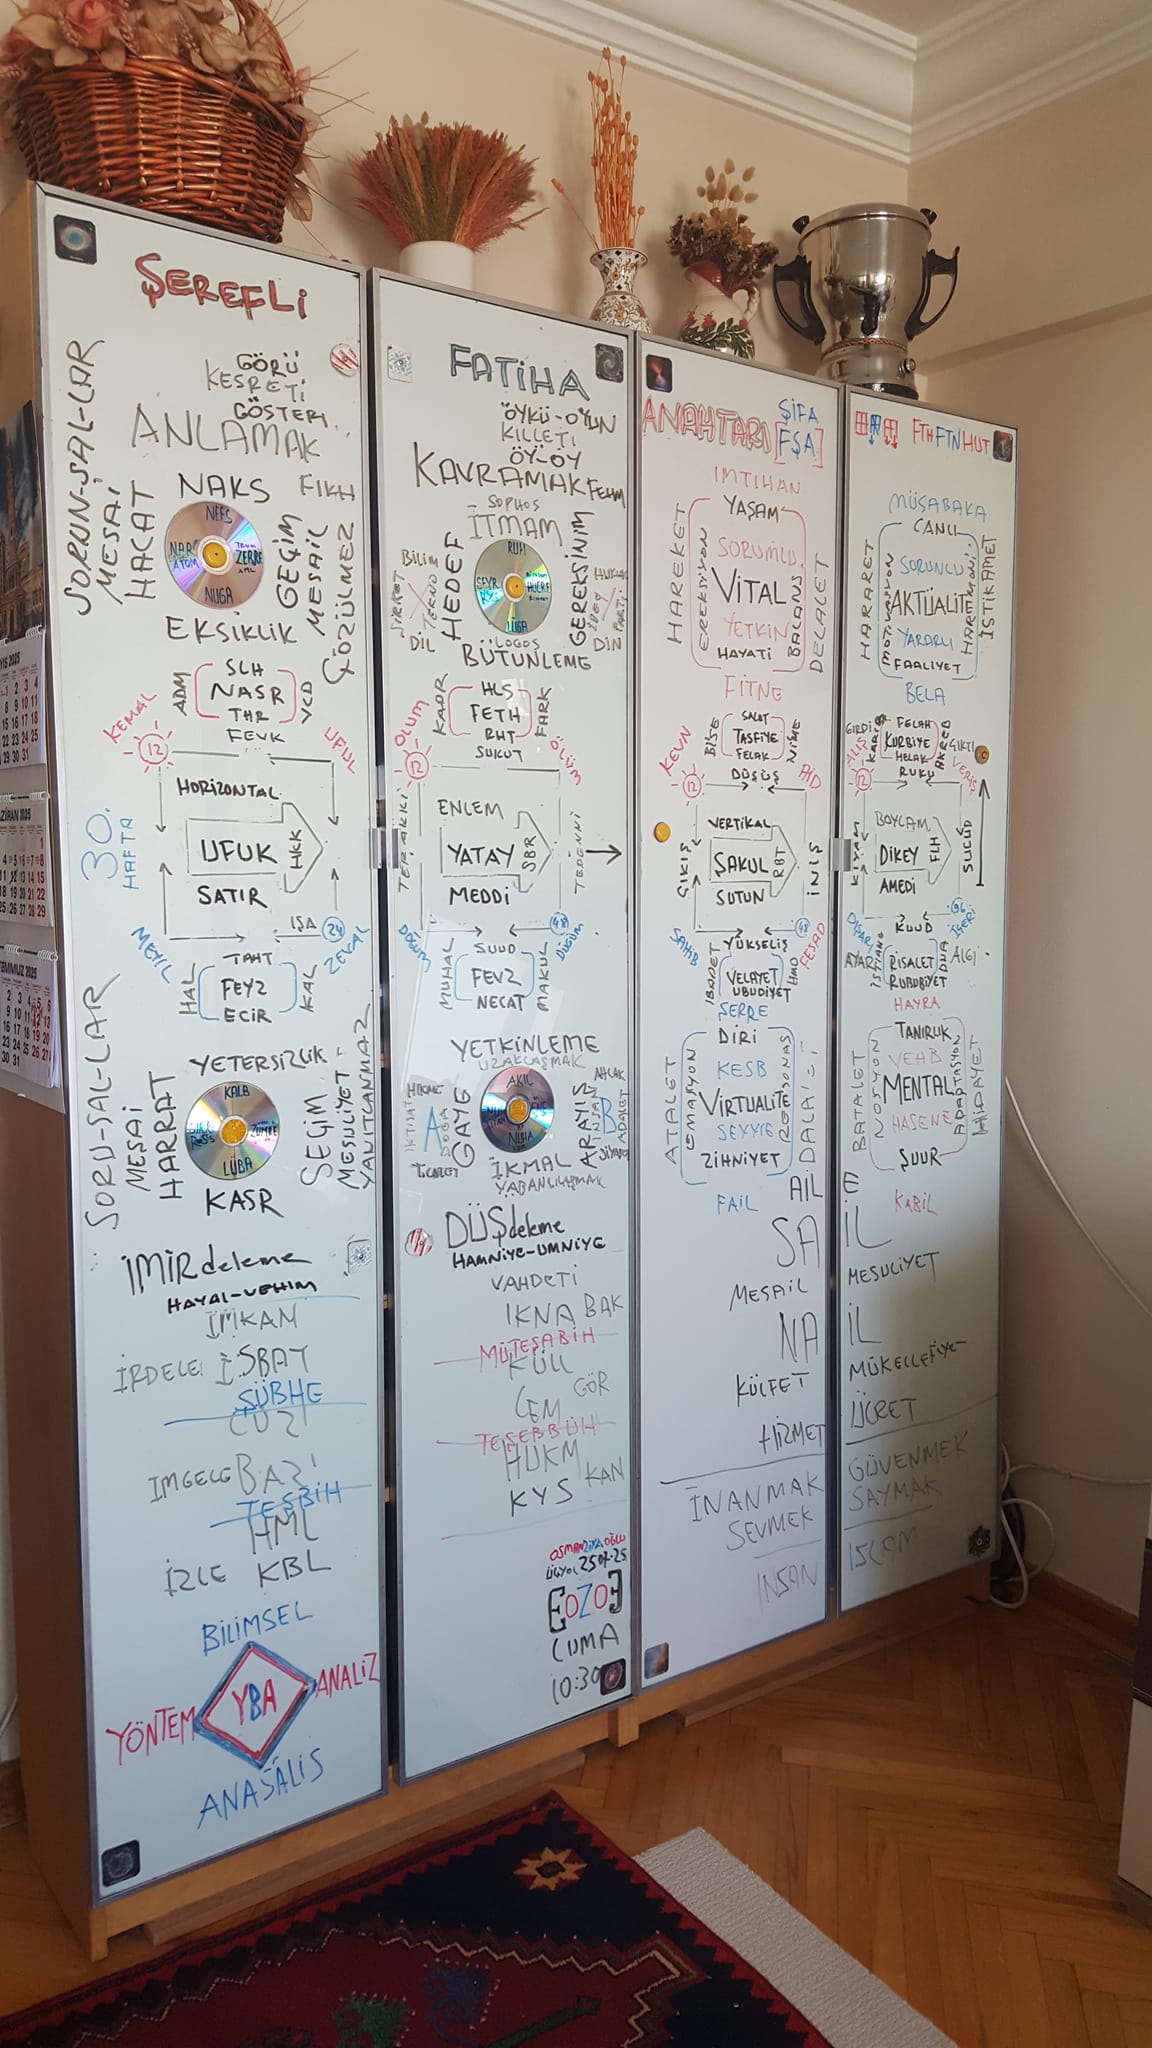 ŞEREFLİ
SORUN-SAL-LAR
MESAİ
HACAT
GÖRÜ
KESRETİ
GÖSTERİ
ANLAMAK
NAKS
FIKH
NEFS
NAR
ATOM
ZERRE
NUGA
GEÇİM
MESAİL
ÇÖZÜLMEZ
EKSİKLİK
ADM
SLH
NASR
THR
VCD
FEVK
KEMAL
12
UFUL
HORİZONTAL
UFUK
HKK
SATIR
30.
HAFTA
İŞA
24
MEYİL
ZEVAL
TAHT
HAL
FEYZ
KAL
ECİR
SORU-SAL-LAR
MESAİ
HARRAT
YETERSİZLİK
KALB
ZÜMRE
LÜBA
SEÇİM
MESULİYET
YANITLANMAZ
KASR
İMİRdeleme
HAYAL-VEHİM
İMKAN
İRDELE
İSBAT
ŞÜBHE
CÜZİ
İMGELE
BAZI
TEŞBİH
HML
İZLE KBL
BİLİMSEL
YÖNTEM
YBA
ANALİZ
ANASALİS
FATİHA
ÖYKÜ-OYUN
KILLETİ
ÖY-OY
KAVRAMAK
FEHM
SOPHOS
İTMAM
BİLİM
TEKNO
DİL
HEDEF
RUH
SEYR
HÜCRE
LOGOS
GEREKSİNİM
HUKUK
DİN
BÜTÜNLEME
KADR
HLS
FETH
RHT
FARK
SUKUT
OLUM
12
ÖLÜM
TERAKKİ
ENLEM
YATAY
SBR
MEDDİ
TEDENNİ
48
DOĞUM
DÜĞÜM
MUHAL
SUUD
FEVZ
NECAT
MAKUL
YETKİNLEME
UZAKLAŞMAK
A
GAYE
AKIL
ARAYIŞ
İNSAN
B
AHLAK
ADALET
TİCARET
İKMAL
YABANCILAŞMAK
DÜŞdeleme
HAMNİYE-UMNİYE
VAHDETİ
İKNA BAK
MÜTEŞABİH
KÜLL
GÖR
CEM
TEŞEBBÜH
HÜKM
KAN
KYS
OSMANZİYAOĞLU
25 07.25
EOZOE
CUMA
10:30
ANAHTARI
ŞİFA
[FŞA]
İMTİHAN
YAŞAM
HAREKET
EREKSİYON
SORUMLU
VİTAL
YETKİN
HAYATİ
BALANS
DELALET
FİTNE
BİŞE
SALAT
TASFİYE
FELAK
NİME
DÜŞÜŞ
KEVN
12
AHD
ÇIKIŞ
VERTİKAL
ŞAKUL
RBT
SUTUN
İNİŞ
48
SAHİB
YÜKSELİŞ
FESAD
İBADET
VELAYET
UBUDİYET
HMD
ŞERRE
DİRİ
ATALET
EMASYON
KESB
VİRTUALİTE
SEYYİE
ZİHNİYET
REZONAS
DALALET
FAİL
AİL E
SA İL
MESAİL
MESULİYET
NA İL
KÜLFET
MÜKELLEFİYE-
ÜCRET
HİZMET
İNANMAK
GÜVENMEK
SEVMEK
SAYMAK
İNSAN
İSLAM
FTHFTNHUT
MÜSABAKA
CANLI
HARARET
MOTİVASYON
SORUNLU
AKTÜALİTE
YARARLI
FAALİYET
HARMONİ
İSTİKAMET
BELA
GİRDİ
KARİB
FELAH
KURBİYE
HELAK
AKREB
ÇIKTI
ALIŞ
12
RUKU
VERİŞ
KIYAM
BOYLAM
DİKEY
FLH
AMEDİ
SUCUD
96
DIŞARI
KUUD
İÇERİ
AYAR
İSTİANE
RİSALET
RUBUBİYET
DUA
ALGI
HAYRA
TANIRUK
BATALET
NOSYON
VEHB
MENTAL
HASENE
ŞUUR
ADAPTASYON
HİDAYET
KABİL